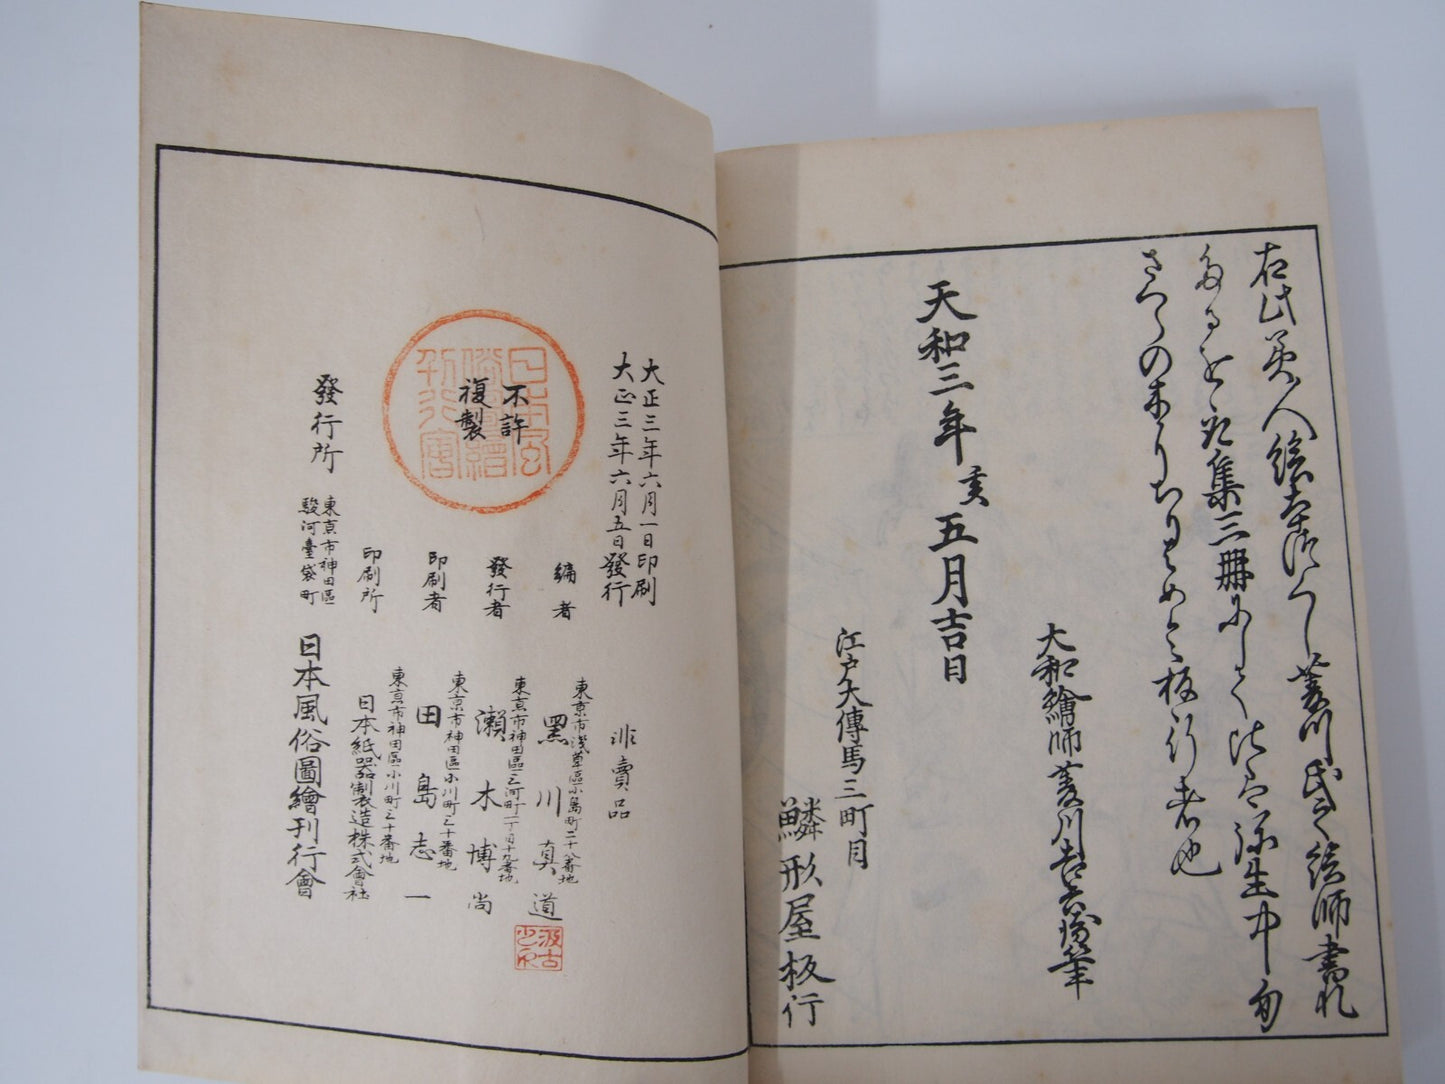 右此美人絵本尽くし菱川氏之絵師書れ
集三冊
板行者也
大和繪師菱川吉兵衛筆
天和三年亥五月吉日
江戸大傳馬三町目
鱗形屋板行
大正三年六月一日印刷
大正三年六月五日發行
非賣品
不許
複製
日本風
俗圖繪
刊行會
編者
東京市浅草區小島町二十八番地
黑川真道
發行者
東京市神田區三河町一丁目十九番地
瀨木博尚
印刷者
東京市神田區小川町三十番地
田島志一
印刷所
東京市神田區小川町三十番地
日本紙器製造株式會社
發行所
東京市神田區
駿河臺袋町
日本風俗圖繪刊行會